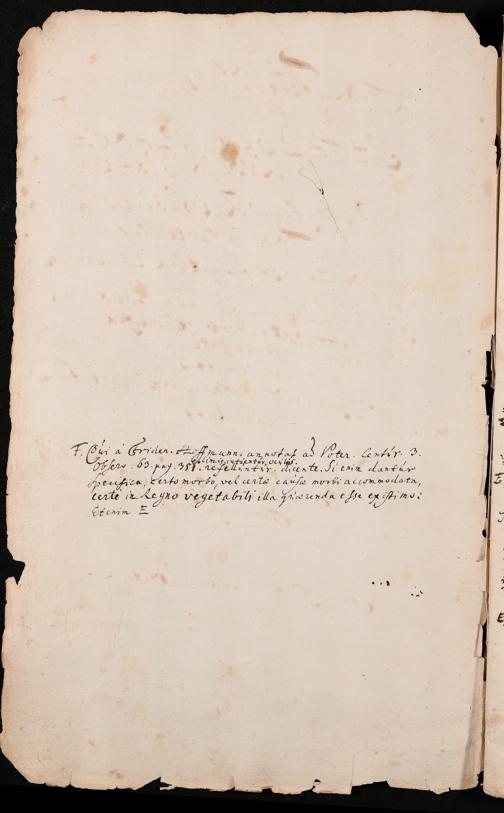 F. Qui á Frider. Hoffmann. annotat ad Poter. Centúr. 3.
Observ. 63. pag. 351. refelluntur. dicente. Si enim dantúr
specifica, certo morbo, vel certæ causæ morbi accommodata,
certe in Regno vegetabili illa quærenda esse existimo:
Etenim